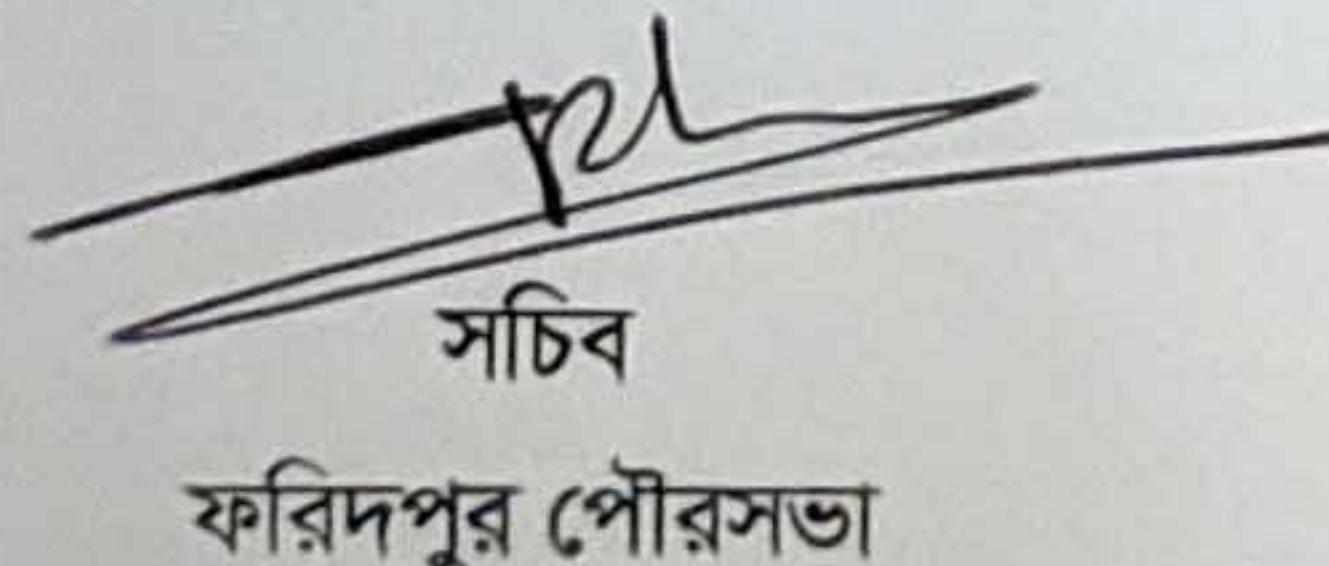 সচিব
ফরিদপুর পৌরসভা